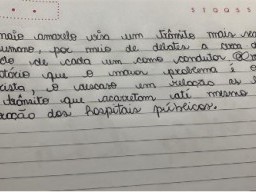 S T Q Q S S
maio amarelo visa um trânsito mais se
umano, por meio de debates a cerca d
de cada um como condutor
tório que o maior problema é o
ista, o descaso em relação as l
trânsito que acarretam até mesmo
ação dos hospitais públicos.